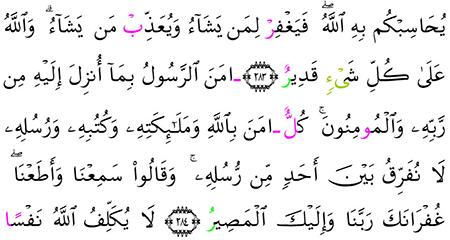 يُحَاسِبْكُم بِهِ اللَّهُ ۖ فَيَغْفِرْ لِمَن يَشَاءُ وَيُعَذِّبْ مَن يَشَاءُ ۗ وَاللَّهُ
عَلَىٰ كُلِّ شَيْءٍ قَدِيرٌ ﴿٢٨٣﴾ ـامَنَ الرَّسُولُ بِمَا أُنزِلَ إِلَيْهِ مِن
رَّبِّهِ وَالْمُومِنُونَ ۚ كُلٌّ ـامَنَ بِاللَّهِ وَمَلَـٰئِكَتِهِ وَكُتُبِهِ وَرُسُلِهِ
لَا نُفَرِّقُ بَيْنَ أَحَدٍ مِّن رُّسُلِهِ ۚ وَقَالُوا سَمِعْنَا وَأَطَعْنَا ۖ
غُفْرَانَكَ رَبَّنَا وَإِلَيْكَ الْمَصِيرُ ﴿٢٨٤﴾ لَا يُكَلِّفُ اللَّهُ نَفْسًا